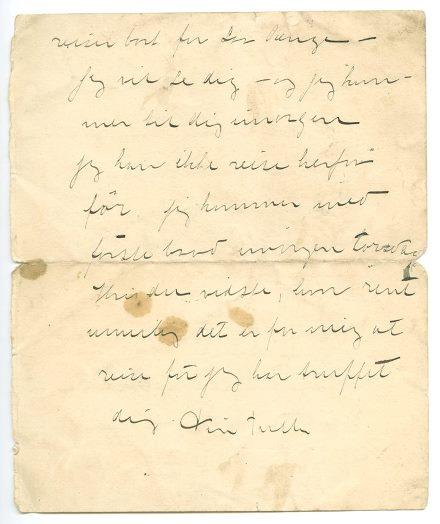 reiser bort for Penge –
jeg vil se dig – og jeg kom-
mer til dig imorgen
jeg kan ikke reise herfra
før. jeg kommer med
første baad imorgen torsdag
Hvis du vidste, hvor rent
umuelig det er for mig at
reise før jeg har truffet
dig Din Tulla